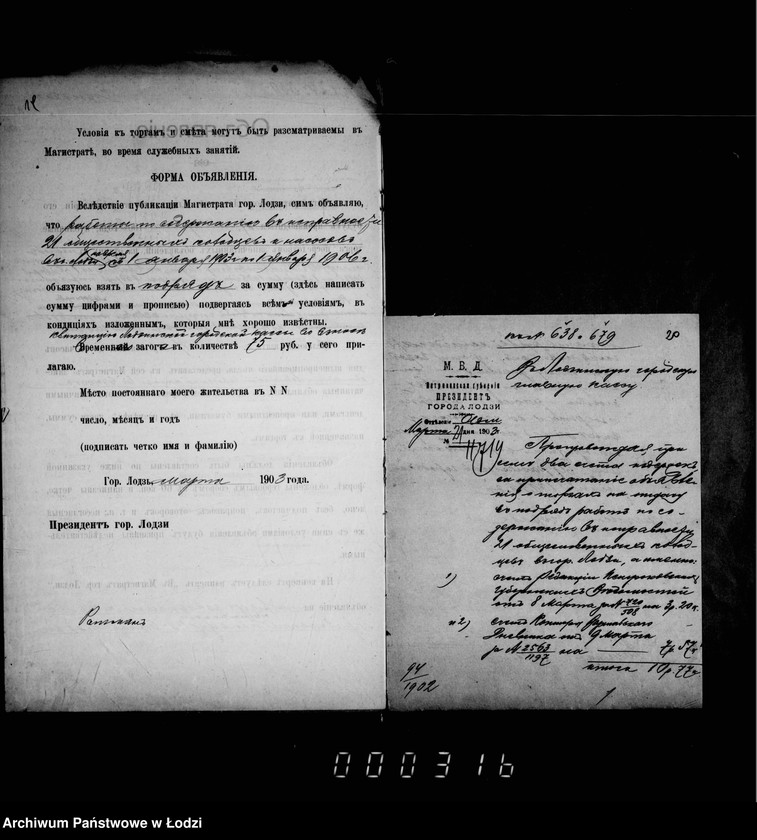 Условія къ торгамъ и смѣта могутъ быть разсматриваемы въ
Магистратѣ, во время служебныхъ занятій.
ФОРМА ОБЪЯВЛЕНІЯ.
Вслѣдствіе публикаціи Магистрата гор. Лодзи, симъ объявляю,
что работы по содержанію въ исправности
21 общественныхъ колодцевъ и насосовъ
съ 1 Января 1903 г. по 1 Января 1906 г.
обязуюсь взять въ подрядъ за сумму (здѣсь написать
сумму цифрами и прописью) подвергаясь всѣмъ условіямъ, въ
кондиціяхъ изложеннымъ, которыя мнѣ хорошо извѣстны.
квитанцію Лодзинской городской кассы
Временный залогъ въ количествѣ 75 руб. у сего при-
лагаю.
Мѣсто постояннаго моего жительства въ N N
число, мѣсяцъ и годъ
(подписать четко имя и фамилію)
Гор. Лодзь, Марта 1903 года.
Президентъ гор. Лодзи
638 679
М. В. Д.
Петроковская губернія
ПРЕЗИДЕНТЪ
ГОРОДА ЛОДЗИ
Марта 21 дня 1903 г.
№ 11719
Въ Лодзинскую городскую
кассу
Препровождая при
семъ два счета
за припечатаніе объявле-
нія о торгахъ на отдачу
въ подрядъ работъ по со-
держанію въ исправности
21 общественныхъ колод-
цевъ въ гор. Лодзи, а именно:
1) счетъ Редакціи Петроковскихъ
Губернскихъ Вѣдомостей
отъ 8 Марта за № на 3 р. 20 к.
и 2) счетъ Конторы Варшавскаго
Дневника отъ 9 Марта
за № 2563/1197 на 7 р 57 к
итого 10 р 77 к
94/1902
000316
Archiwum Państwowe w Łodzi